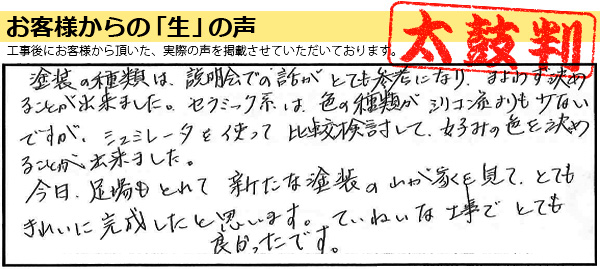 お客様からの「生」の声
工事後にお客様から頂いた、実際の声を掲載させていただいております。
太鼓判
塗装の種類は、説明会での話がとても参考になり、まよわず決め
ることが出来ました。セラミック系は、色の種類がシリコン系よりも少ない
ですが、シュミレータを使って比較検討して、好みの色を決め
ることが、出来ました。
今日、足場もとれて新たな塗装のわが家を見て、とても
きれいに完成したと思います。ていねいな工事でとても
良かったです。